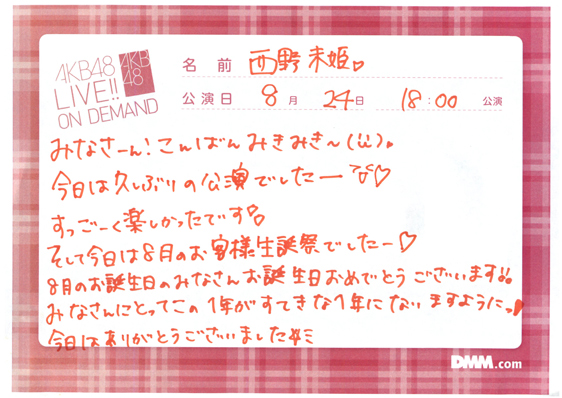 AKB48
LIVE!!
ON DEMAND
AKB
48
名前 西野未姫
公演日 8月 24日 18:00 公演
みなさーん!こんばんみきみき〜(ii)。
今日は久しぶりの公演でしたーな♡
すっごーく楽しかったです
そして今日は8月のお客様生誕祭でしたー♡
8月のお誕生日のみなさんお誕生日おめでとうございます!!
みなさんにとってこの1年がすてきな1年にないますようにっ!
今日はありがとうございました☆ミ
DMM.com